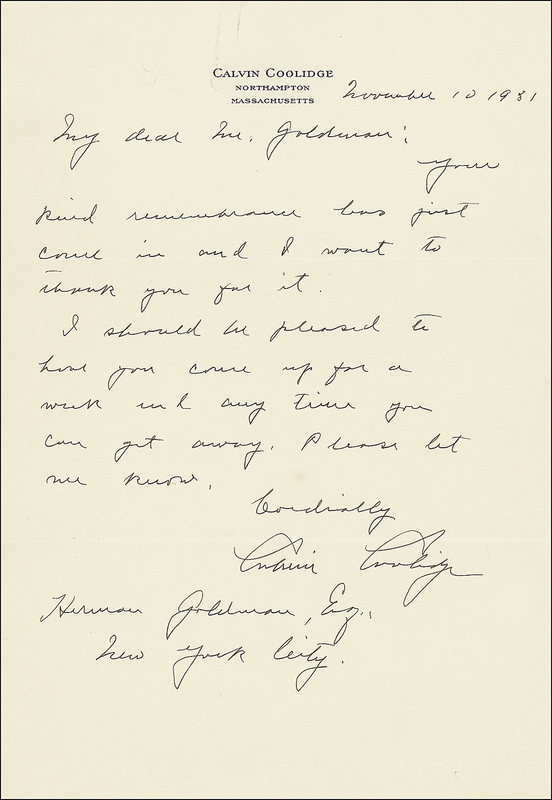 CALVIN COOLIDGE
NORTHAMPTON
MASSACHUSETTS
November 10 1931
My dear Mr. Goldman:
Your
kind remembrance has just
come in and I want to
thank you for it.
I should be pleased to
have you come up for a
week end any time you
can get away. Please let
me know.
Cordially
Calvin Coolidge
Herman Goldman, Esq.,
New York City.